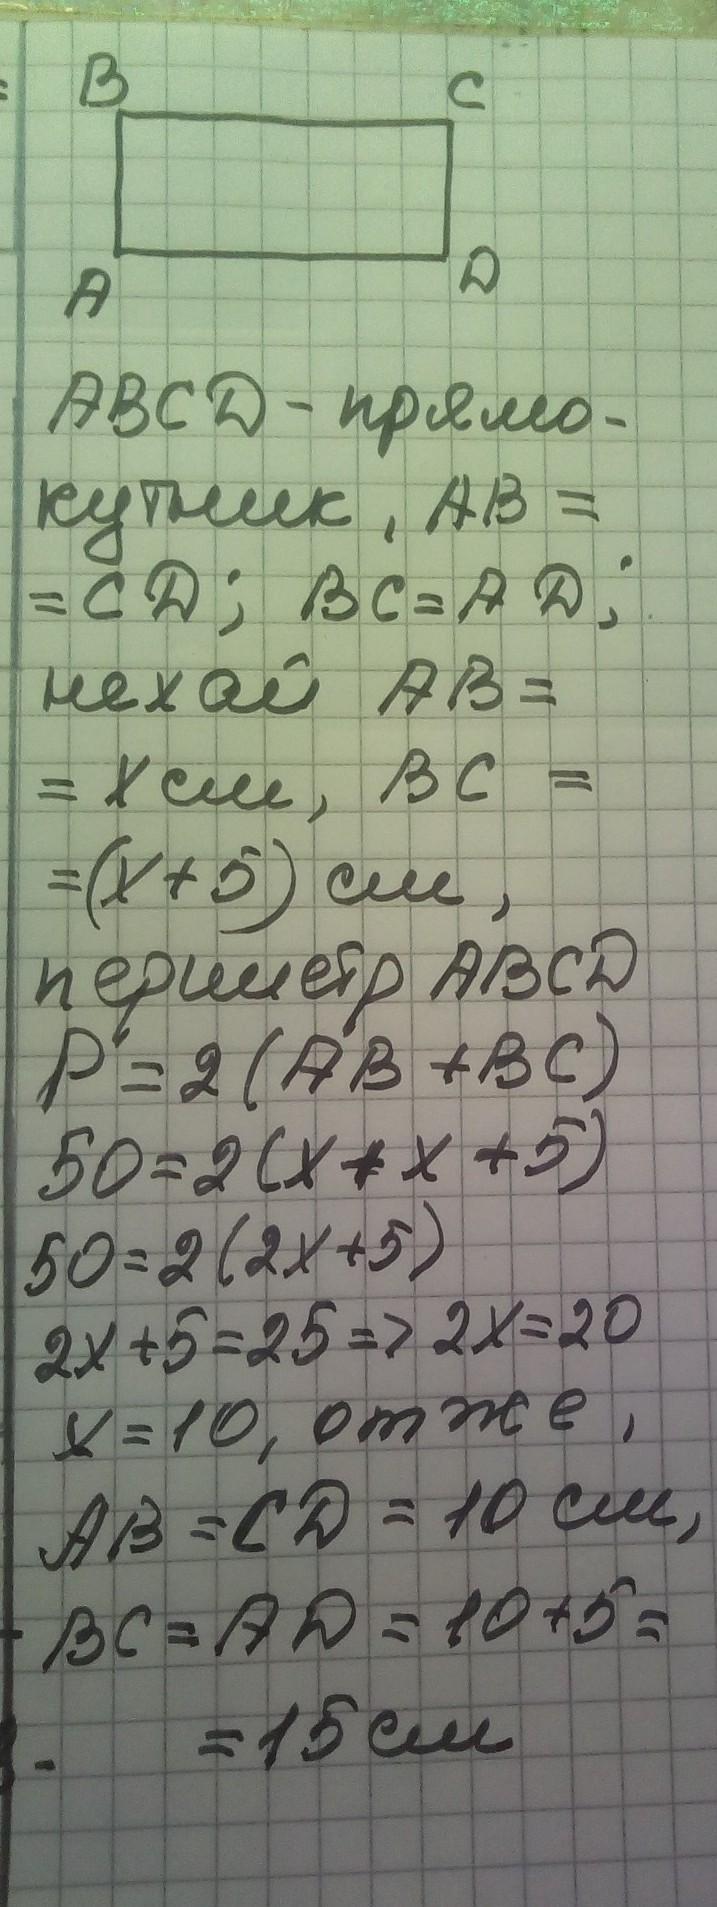 B C
A D
ABCD - прямо-
кутник, AB =
= CD; BC = AD;
нехай AB =
= x см, BC =
= (x + 5) см,
периметр ABCD
P = 2 (AB + BC)
50 = 2 (x + x + 5)
50 = 2 (2x + 5)
2x + 5 = 25 => 2x = 20
x = 10, отже,
AB = CD = 10 см,
BC = AD = 10 + 5 =
= 15 см